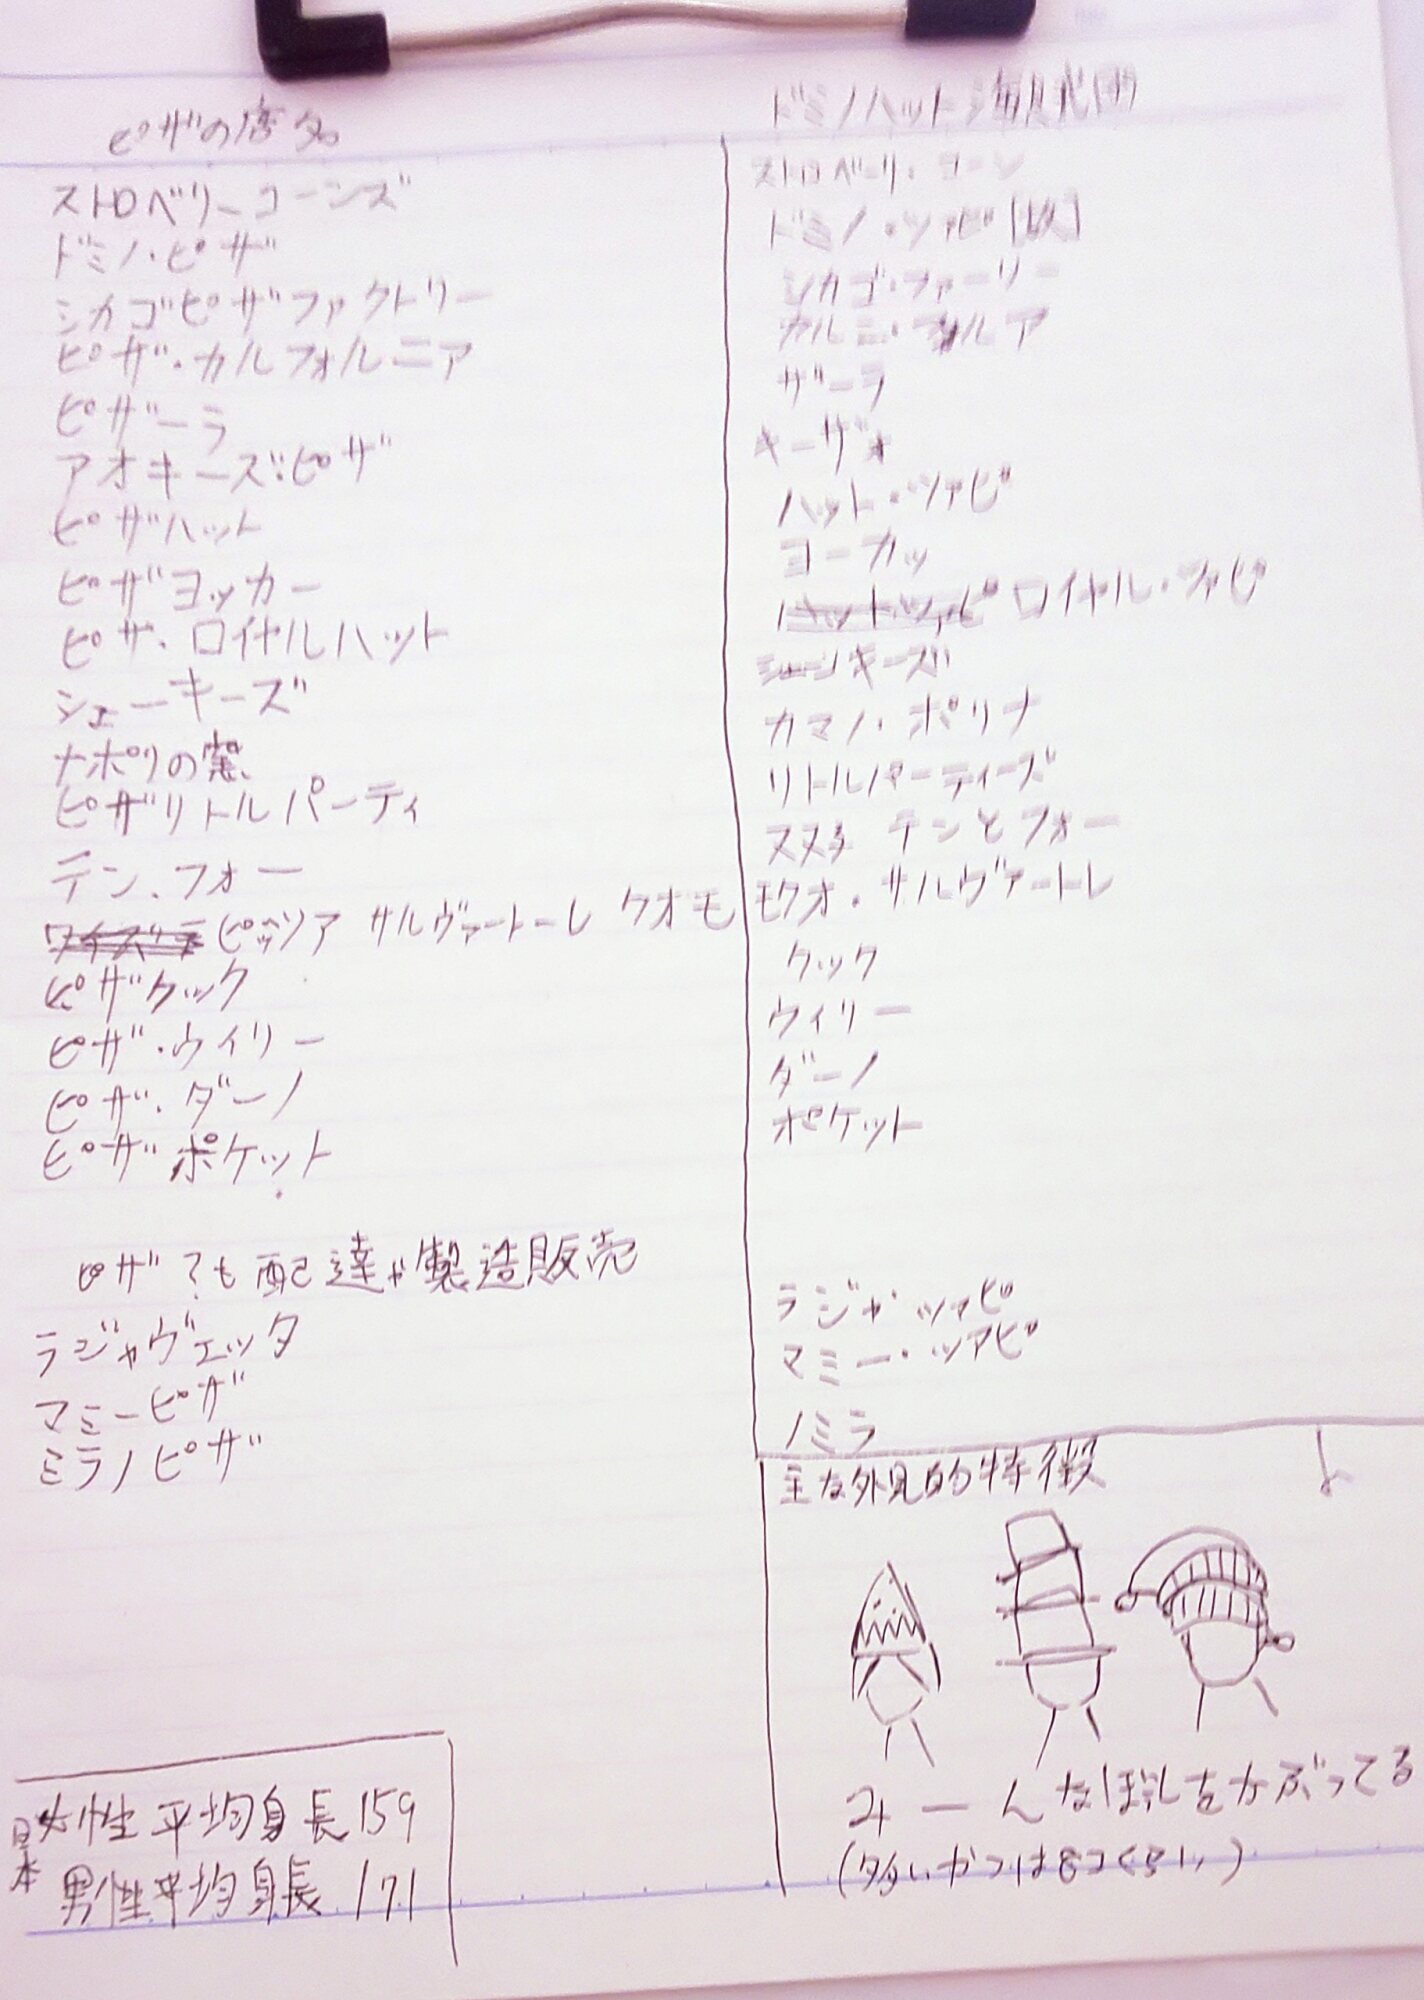 ピザの店名
ストロベリーコーンズ
ドミノ・ピザ
シカゴピザファクトリー
ピザ・カルフォルニア
ピザーラ
アオキーズ:ピザ
ピザハット
ピザヨッカー
ピザ・ロイヤルハット
シェーキーズ
ナポリの窯
ピザリトルパーティ
テン.フォー
ピッツァ サルヴァートーレ クオモ
ピザクック
ピザ・ウィリー
ピザ・ダーノ
ピザポケット
ピザ?も配達や製造販売
ラジャヴェッタ
マミーピザ
ミラノピザ
日本
女性平均身長159
男性平均身長171
ドミノハット海賊団
ストロベーリ・コーン
ドミノ・ツァピ
シカゴ・ファーリー
カルニ・フォルア
ザーラ
キーザォ
ハット・ツァピ
ヨーカッ
ロイヤル・ツァピ
キーズ
カマノ・ポリナ
リトルパーティーズ
テンとフォー
モクオ・サルヴァートレ
クック
ウィリー
ダーノ
ポケット
ラジャ ツァピ
マミー・ツァピ
ノミラ
主な外見的特徴
みーんなぼしをかぶってる
(多いやつは8コくらい)